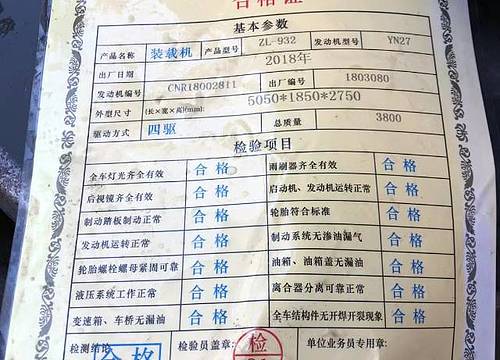 合格证
基本参数
产品名称 装载机 产品型号 ZL-932 发动机型号 YN27
出厂日期 2018年
发动机编号 CNR18002811 出厂编号 1803080
外型尺寸 (长×宽×高)(mm): 5050*1850*2750
驱动方式 四驱 总质量 3800
检验项目
全车灯光齐全有效 合格 雨刷器齐全有效 合格
后视镜齐全有效 合格 启动机、发动机运转正常 合格
制动踏板制动正常 合格 轮胎符合标准 合格
发动机运转正常 合格 制动系统无渗油漏气 合格
轮胎螺栓螺母紧固可靠 合格 油箱、油箱盖无漏油 合格
液压系统工作正常 合格 离合器分离可靠正常 合格
变速箱、车桥无漏油 合格 全车结构件无开焊开裂现象 合格
检测结论 合格 检验员盖章: 检 单位业务员专用章: